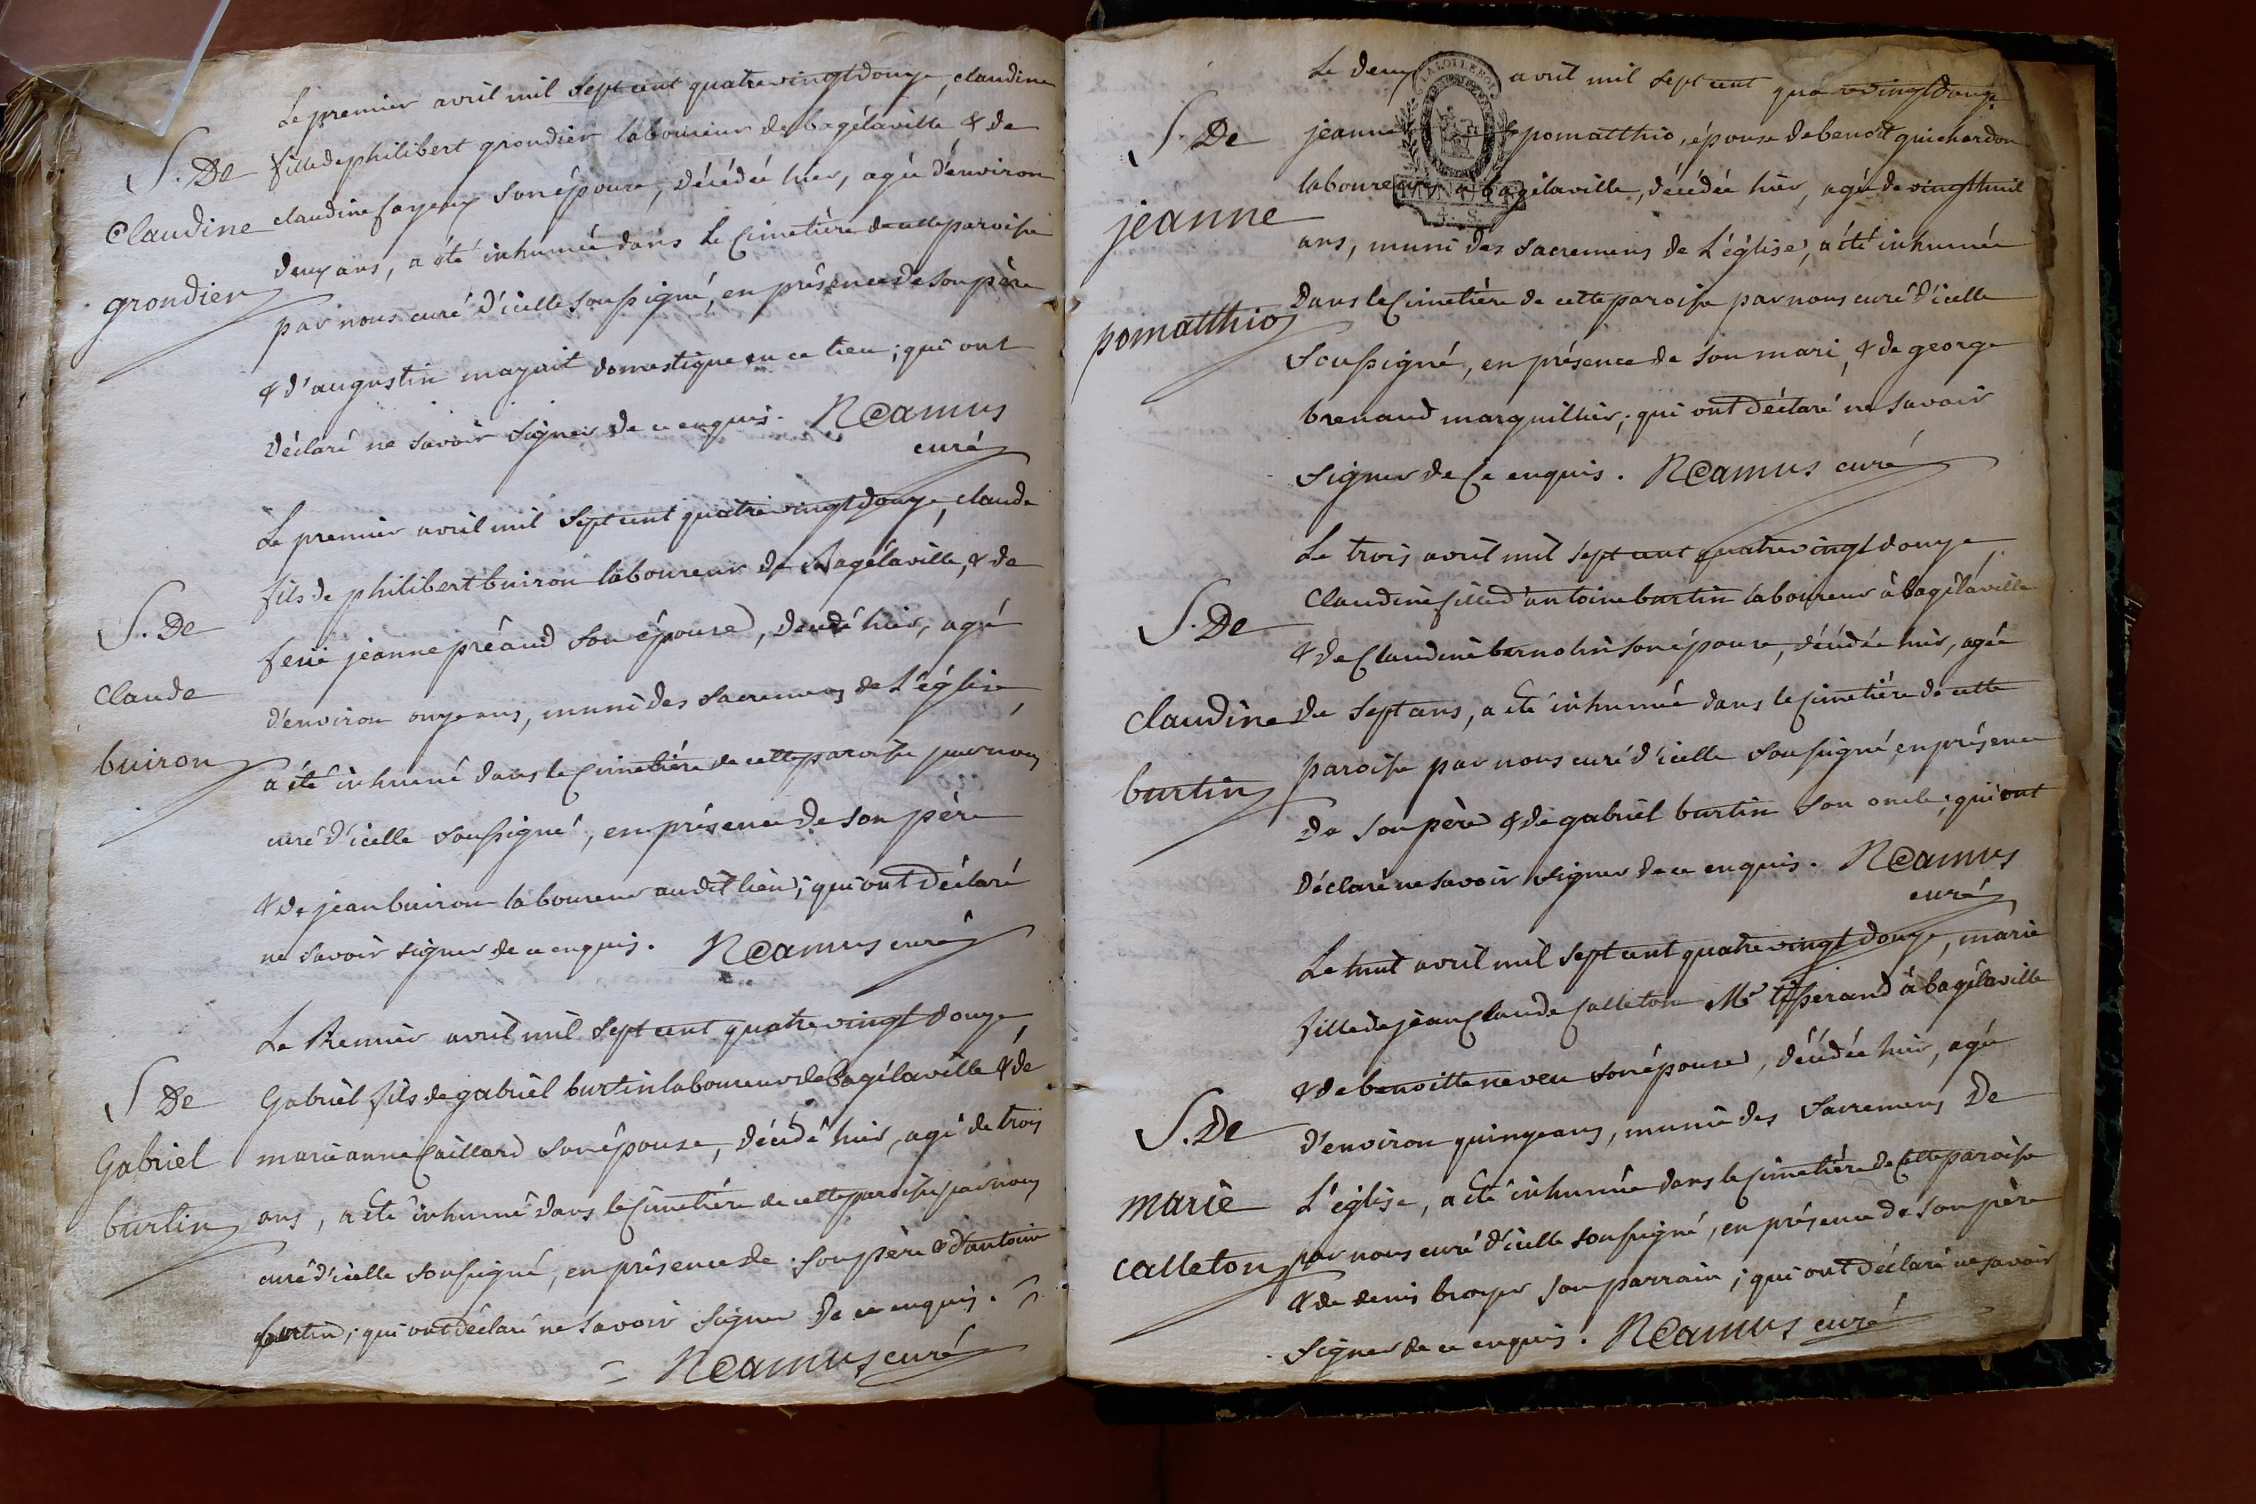 Le premier avril mil sept cent quatre vingt douze, claudine
S. De fille de philibert grondier laboureur de bagélaville & de
Claudine claudine son épouse, décédée hier, agée d'environ
grondier deux ans, a été inhumée dans le Cimetière de cette paroisse
par nous curé d'icelle soussigné, en présence de son père
& d'augustin domestique en ce lieu; qui ont
déclaré ne savoir signer de ce enquis. NCamus
curé
Le premier avril mil sept cent quatre vingt douze, claude
S. De fils de philibert buiron laboureur de Bagélaville, & de
feue jeanne préaud son épouse, décédé hier, agé
claude d'environ onze ans, muni des sacremens de L'église,
buiron a été inhumé dans le Cimetière de cette paroisse par nous
curé d'icelle soussigné, en présence de son père
& de jean buiron laboureur audit lieu; qui ont déclaré
ne savoir signer de ce enquis. NCamus curé
Le Premier avril mil sept cent quatre vingt douze
S De Gabriel fils de gabriel burtin laboureur de Bagélaville & de
Gabriel marie anne Caillard son épouse, décédé hier, agé de trois
burtin ans, a été inhumé dans le Cimetière de cette paroisse par nous
curé d'icelle soussigné, en présence de son père & d'antoine
burtin; qui ont déclaré ne savoir signer de ce enquis.
NCamus curé
Le deux avril mil sept cent quatre vingt douze
S. De jeanne pomatthio, épouse de benoit guichardon
jeanne laboureur à bagélaville, décédée hier, agée de vingt huit
ans, muni des sacremens de L'église, a été inhumée
pomatthio Dans le Cimetière de cette paroisse par nous curé d'icelle
soussigné, en présence de son mari, & de george
brenaud marguillier; qui ont déclaré ne savoir
signer de Ce enquis. NCamus curé
Le trois avril mil sept cent quatre vingt douze
S. De Claudine fille d'antoine burtin laboureur à bagélaville
& de Claudine bernolin son épouse, décédée hier, agée
claudine de sept ans, a été inhumée dans le Cimetière de cette
burtin paroisse par nous curé d'icelle soussigné, en présence
de son père & de gabriel burtin son oncle; qui ont
déclaré ne savoir signer de ce enquis. NCamus
curé
Le huit avril mil sept cent quatre vingt douze, marie
fille de jean Claude Calleton Me tisserand à bagélaville
& de benoitte neveu son épouse, décédée hier, agée
S. De d'environ quinze ans, munie des sacremens De
marie L'église, a été inhumée dans le Cimetière de Cette paroisse
calleton par nous curé d'icelle soussigné, en présence de son père
& de denis broyer son parrain; qui ont déclaré ne savoir
signer de ce enquis. NCamus curé